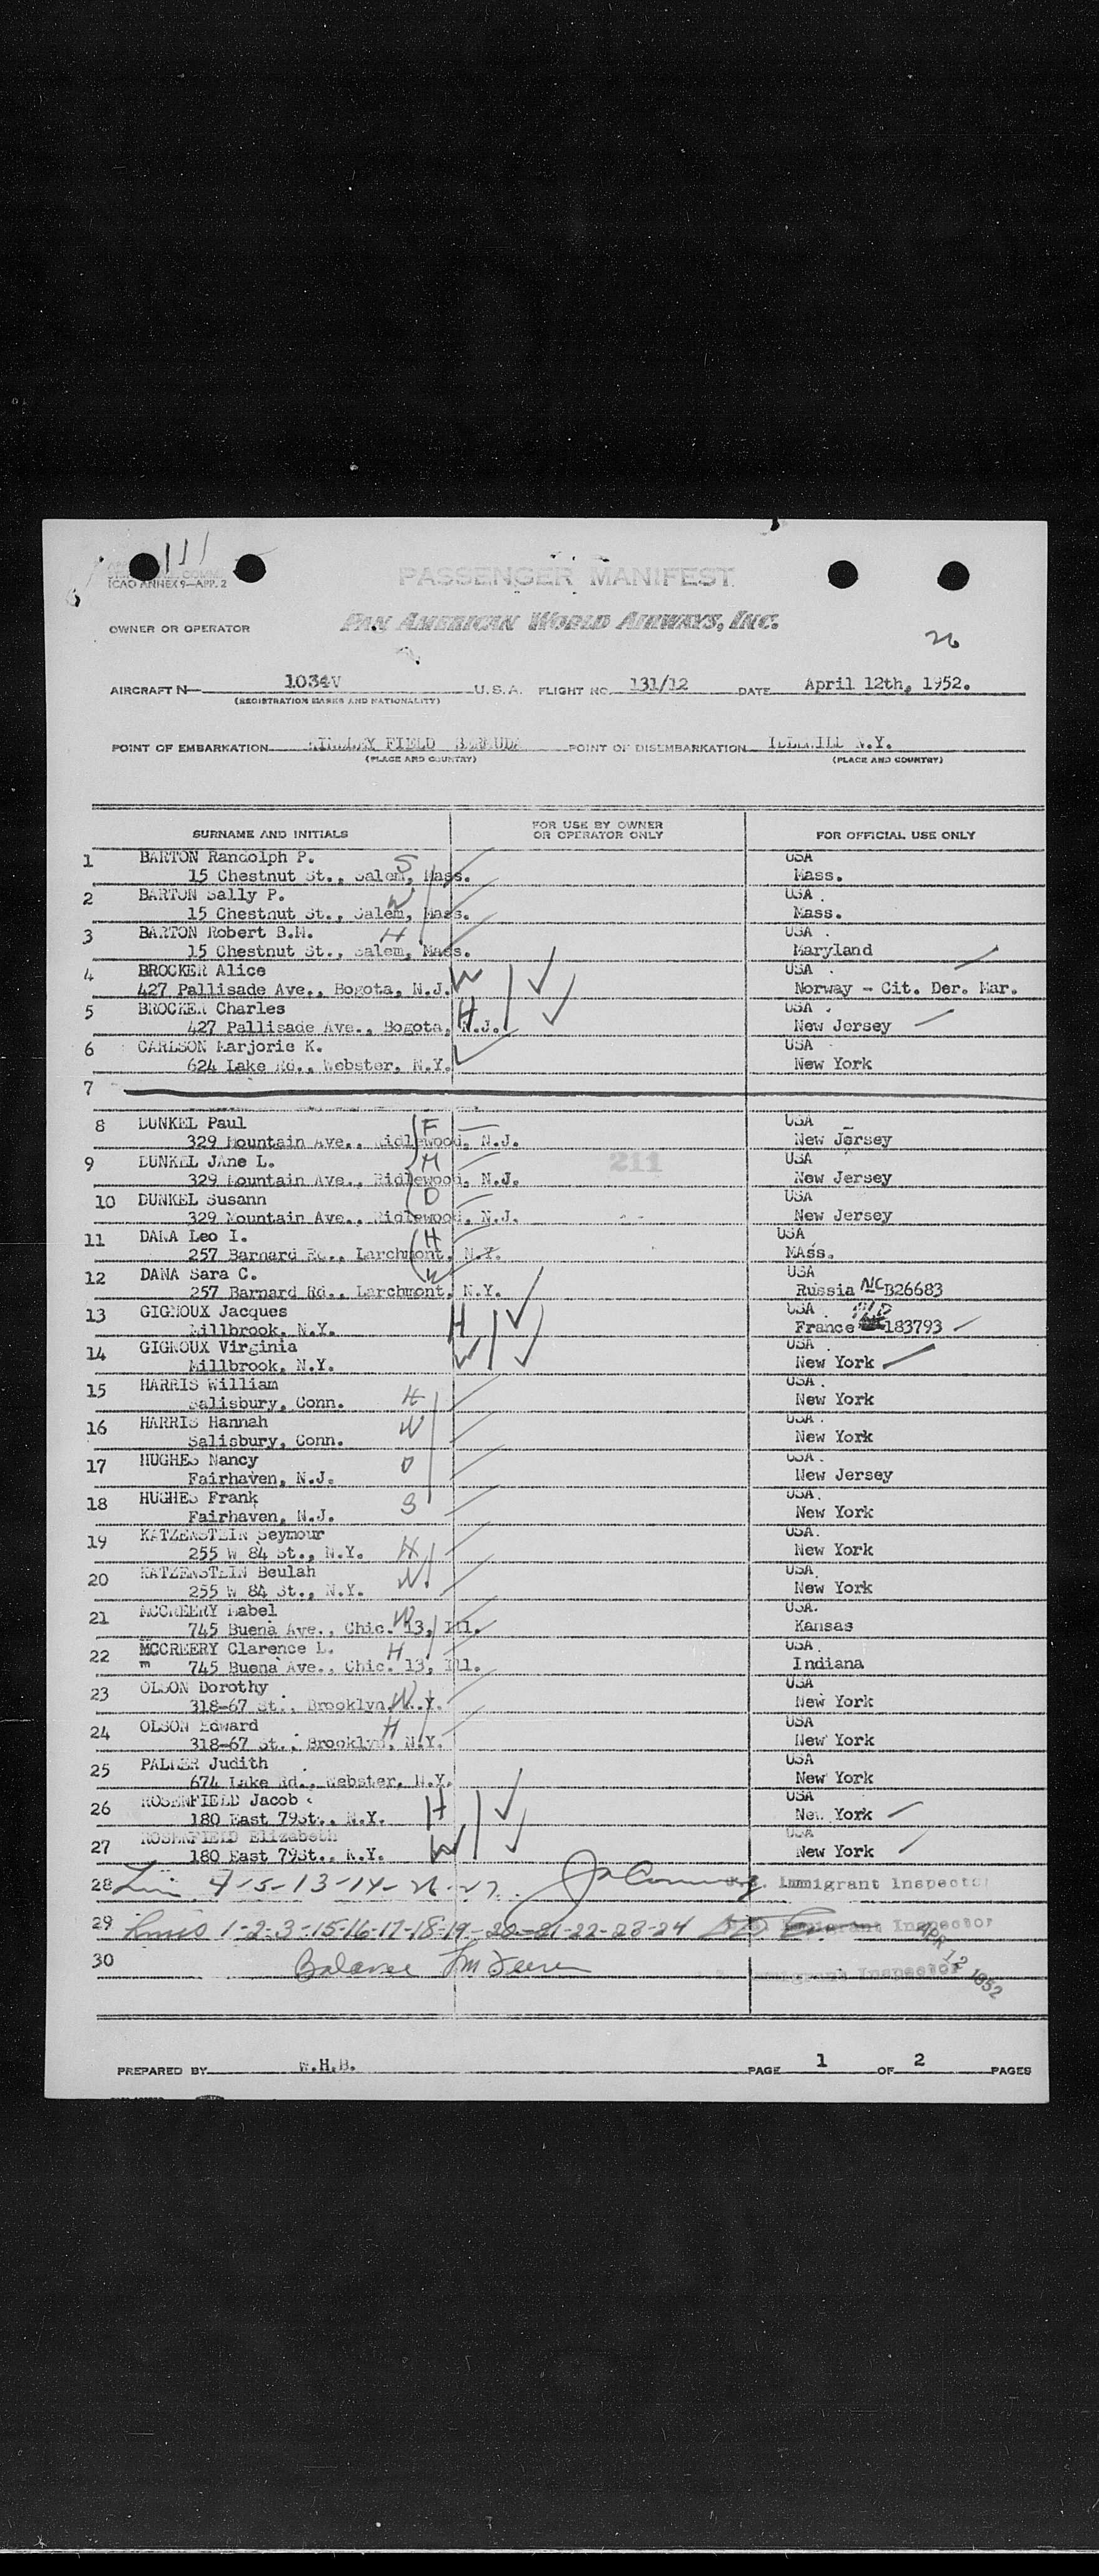 ICAO ANNEX 9—APP. 2
PASSENGER MANIFEST
OWNER OR OPERATOR
PAN AMERICAN WORLD AIRWAYS, INC.
26
AIRCRAFT N 1034V U.S.A. FLIGHT NO. 131/12 DATE April 12th, 1952.
(REGISTRATION MARKS AND NATIONALITY)
POINT OF EMBARKATION KINDLEY FIELD BERMUDA POINT OF DISEMBARKATION IDLEWILD N.Y.
(PLACE AND COUNTRY) (PLACE AND COUNTRY)
SURNAME AND INITIALS FOR USE BY OWNER OR OPERATOR ONLY FOR OFFICIAL USE ONLY
1 BARTON Randolph P. S USA
15 Chestnut St., Salem, Mass. Mass.
2 BARTON Sally P. W USA
15 Chestnut St., Salem, Mass. Mass.
3 BARTON Robert B.M. H USA
15 Chestnut St., Salem, Mass. Maryland
4 BROCKER Alice USA
427 Pallisade Ave., Bogota, N.J. W Norway - Cit. Der. Mar.
5 BROCKER Charles H USA
427 Pallisade Ave., Bogota, N.J. New Jersey
6 CARLSON Marjorie K. USA
624 Lake Rd., Webster, N.Y. New York
7
8 DUNKEL Paul F USA
329 Mountain Ave., Ridlewood, N.J. New Jersey
9 DUNKEL JAne L. M 211 USA
329 Mountain Ave., Ridlewood, N.J. New Jersey
10 DUNKEL Susann D USA
329 Mountain Ave., Ridlewood, N.J. New Jersey
11 DANA Leo I. H USA
257 Barnard Rd., Larchmont, N.Y. MAss.
12 DANA Sara C. W USA
257 Barnard Rd., Larchmont, N.Y. Russia NC B26683
13 GIGNOUX Jacques H USA
Millbrook, N.Y. France 183793
14 GIGNOUX Virginia W USA
Millbrook, N.Y. New York
15 HARRIS William USA
Salisbury, Conn. H New York
16 HARRIS Hannah W USA
Salisbury, Conn. New York
17 HUGHES Nancy D USA
Fairhaven, N.J. New Jersey
18 HUGHES Frank S USA
Fairhaven, N.J. New York
19 KATZENSTEIN Seymour USA
255 W 84 St., N.Y. H New York
20 KATZENSTEIN Beulah W USA
255 W 84 St., N.Y. New York
21 MCCREERY Mabel W USA
745 Buena Ave., Chic. 13, Ill. Kansas
22 MCCREERY Clarence L. H USA
m 745 Buena Ave., Chic. 13, Ill. Indiana
23 OLSON Dorothy USA
318-67 St., Brooklyn, N.Y. W New York
24 OLSON Edward H USA
318-67 St., Brooklyn, N.Y. New York
25 PALMER Judith USA
674 Lake Rd., Webster, N.Y. New York
26 ROSENFIELD Jacob H USA
180 East 79St., N.Y. New York
27 ROSENFIELD Elizabeth W USA
180 East 79St., N.Y. New York
28 4-5-13-14-26-27 Immigrant Inspector
29 Lines 1-2-3-15-16-17-18-19-20-21-22-23-24 Immigrant Inspector
APR 12 1952
30 Balance Immigrant Inspector
PREPARED BY W.H.B. PAGE 1 OF 2 PAGES